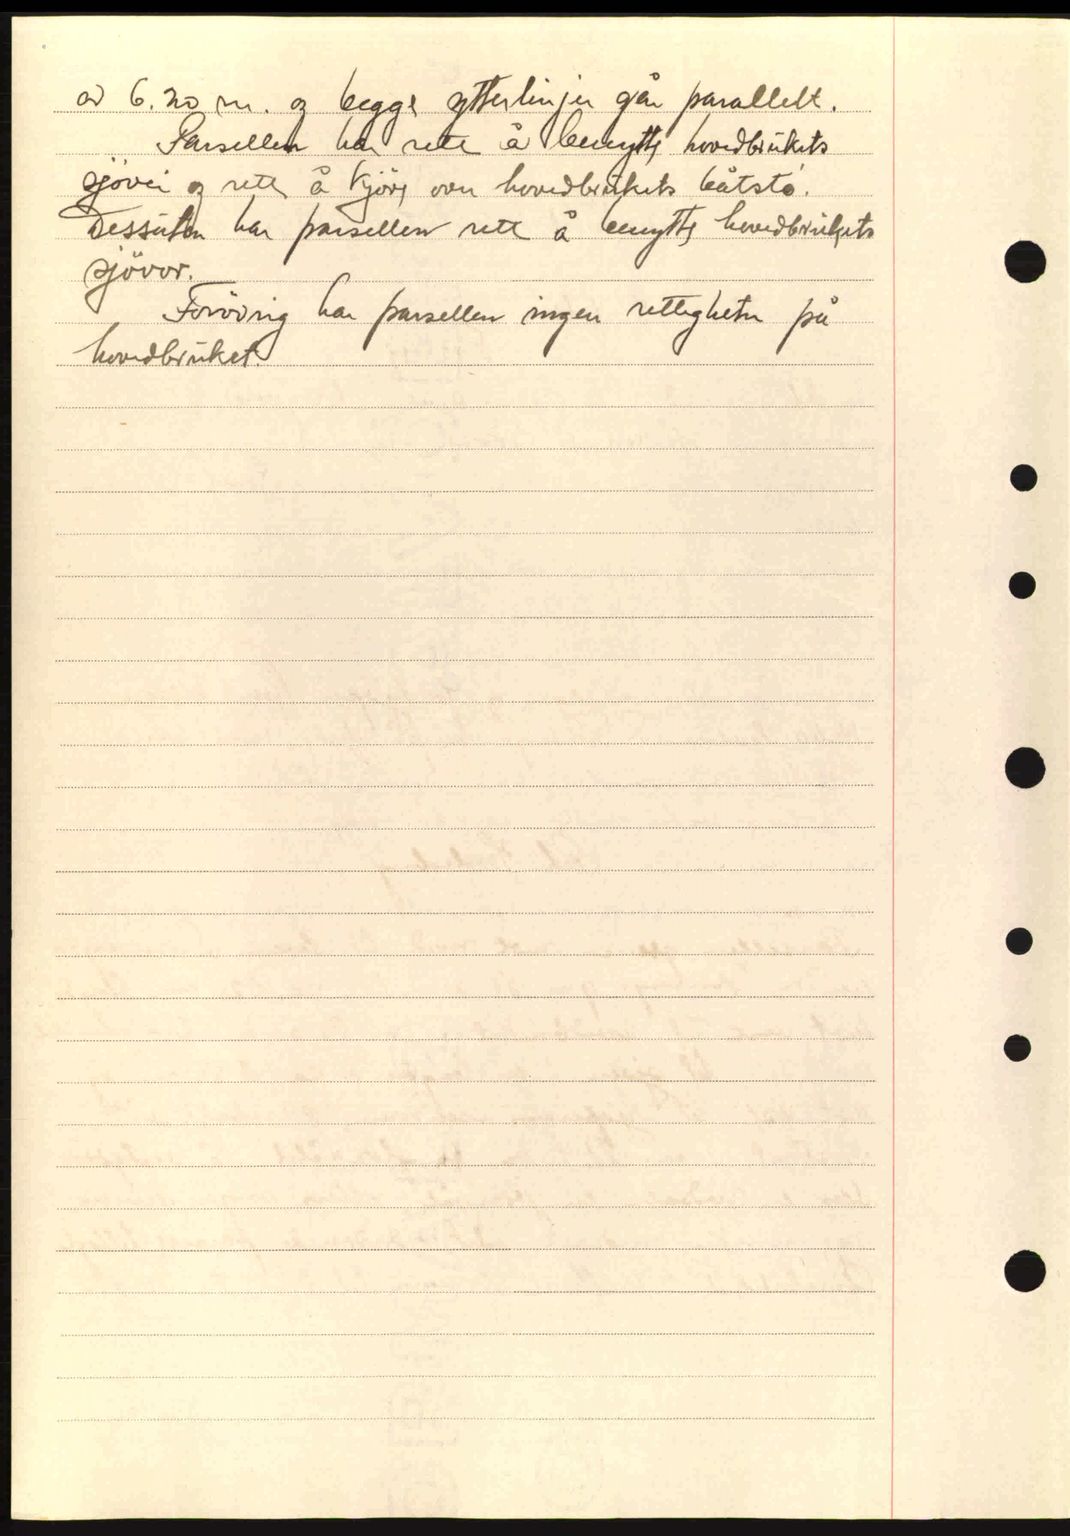 av 6.20 m. og begge ytterlinjer går parallelt.
Parsellen har rett å benytte hovedbrukets
sjövei og rett å kjöre over hovedbrukets båtstö.
Dessuten har parsellen rett å benytte hovedbrukets
sjövor.
Forövrig har parsellen ingen rettigheter på
hovedbruket.